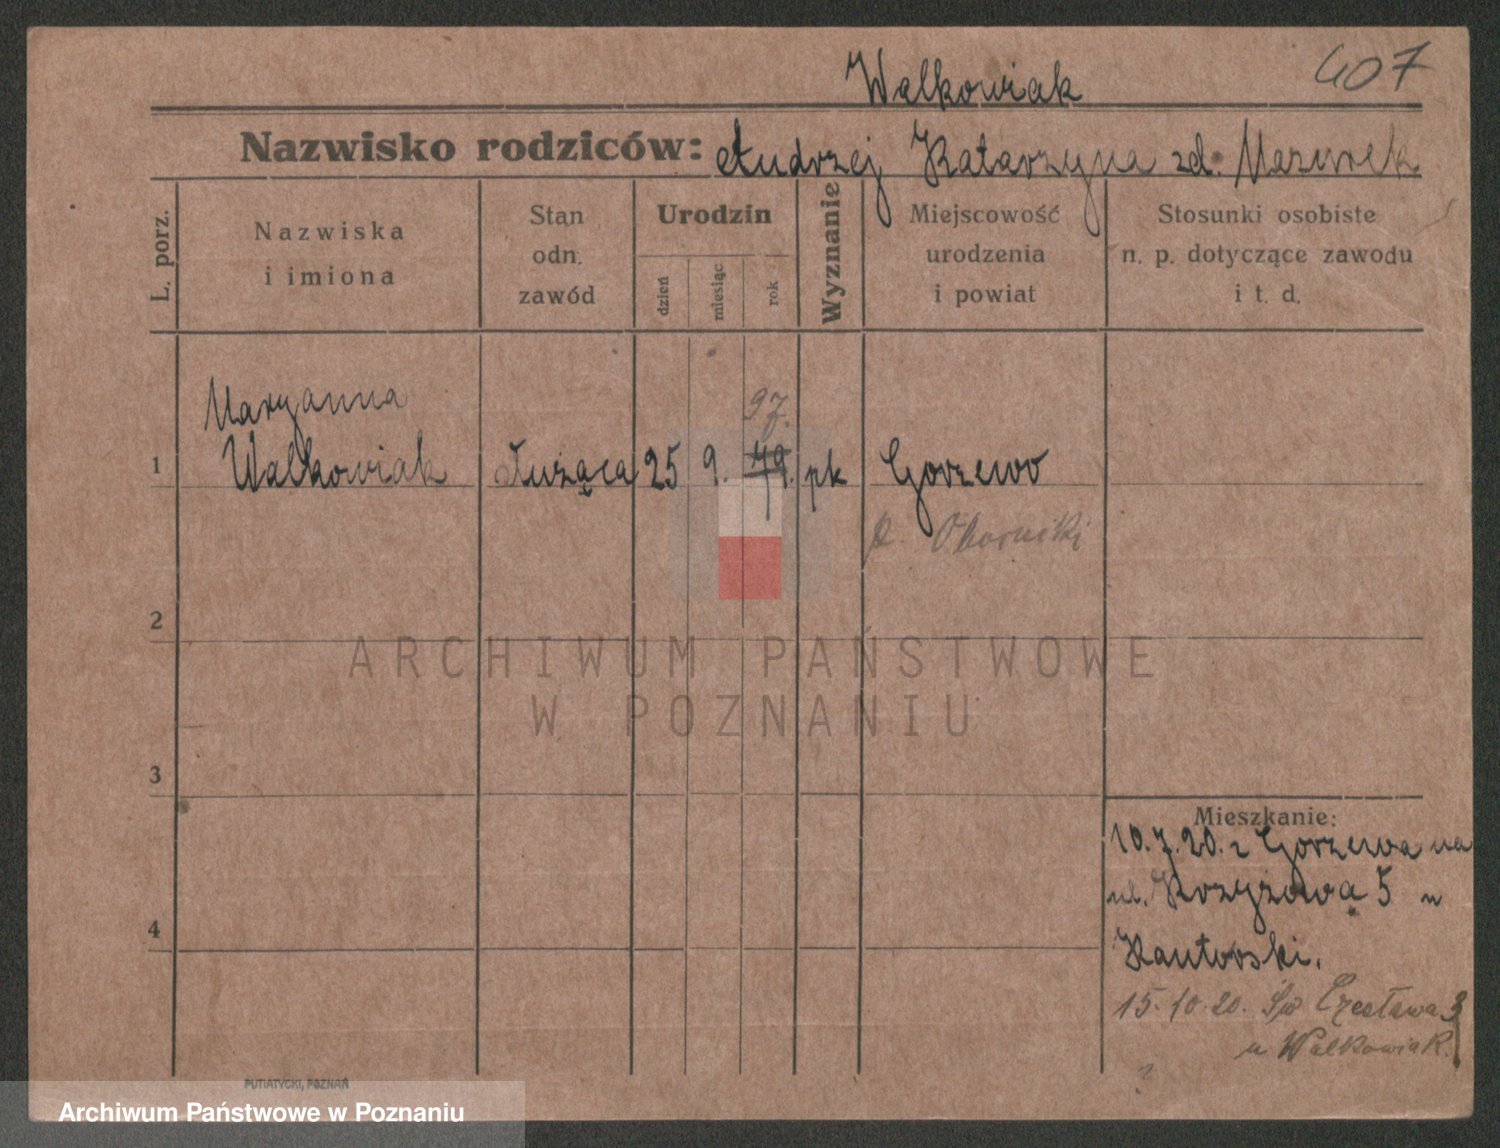 407
Walkowiak
Nazwisko rodziców: Andrzej Katarzyna zd. Mazurek
L. porz.
Nazwiska
i imiona
Stan
odn.
zawód
Urodzin
dzień
miesiąc
rok
Wyznanie
Miejscowość
urodzenia
i powiat
Stosunki osobiste
n. p. dotyczące zawodu
i t. d.
Maryanna
97.
1 Walkowiak służąca 25 9. 79. pk Gorzewo
p. Oborniki
2
ARCHIWUM PAŃSTWOWE
W POZNANIU
3
Mieszkanie:
10.7.20. z Gorzewa na
ul. Krzyżowa 5 u
4
Kantorski.
15.10.20. Św Czesława 3
u Walkowiak.
PUTIATYCKI, POZNAŃ
Archiwum Państwowe w Poznaniu